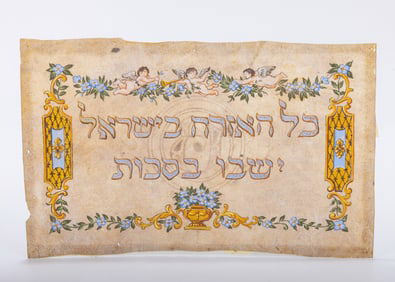 כל האזרח בישראל
ישבו בסכות